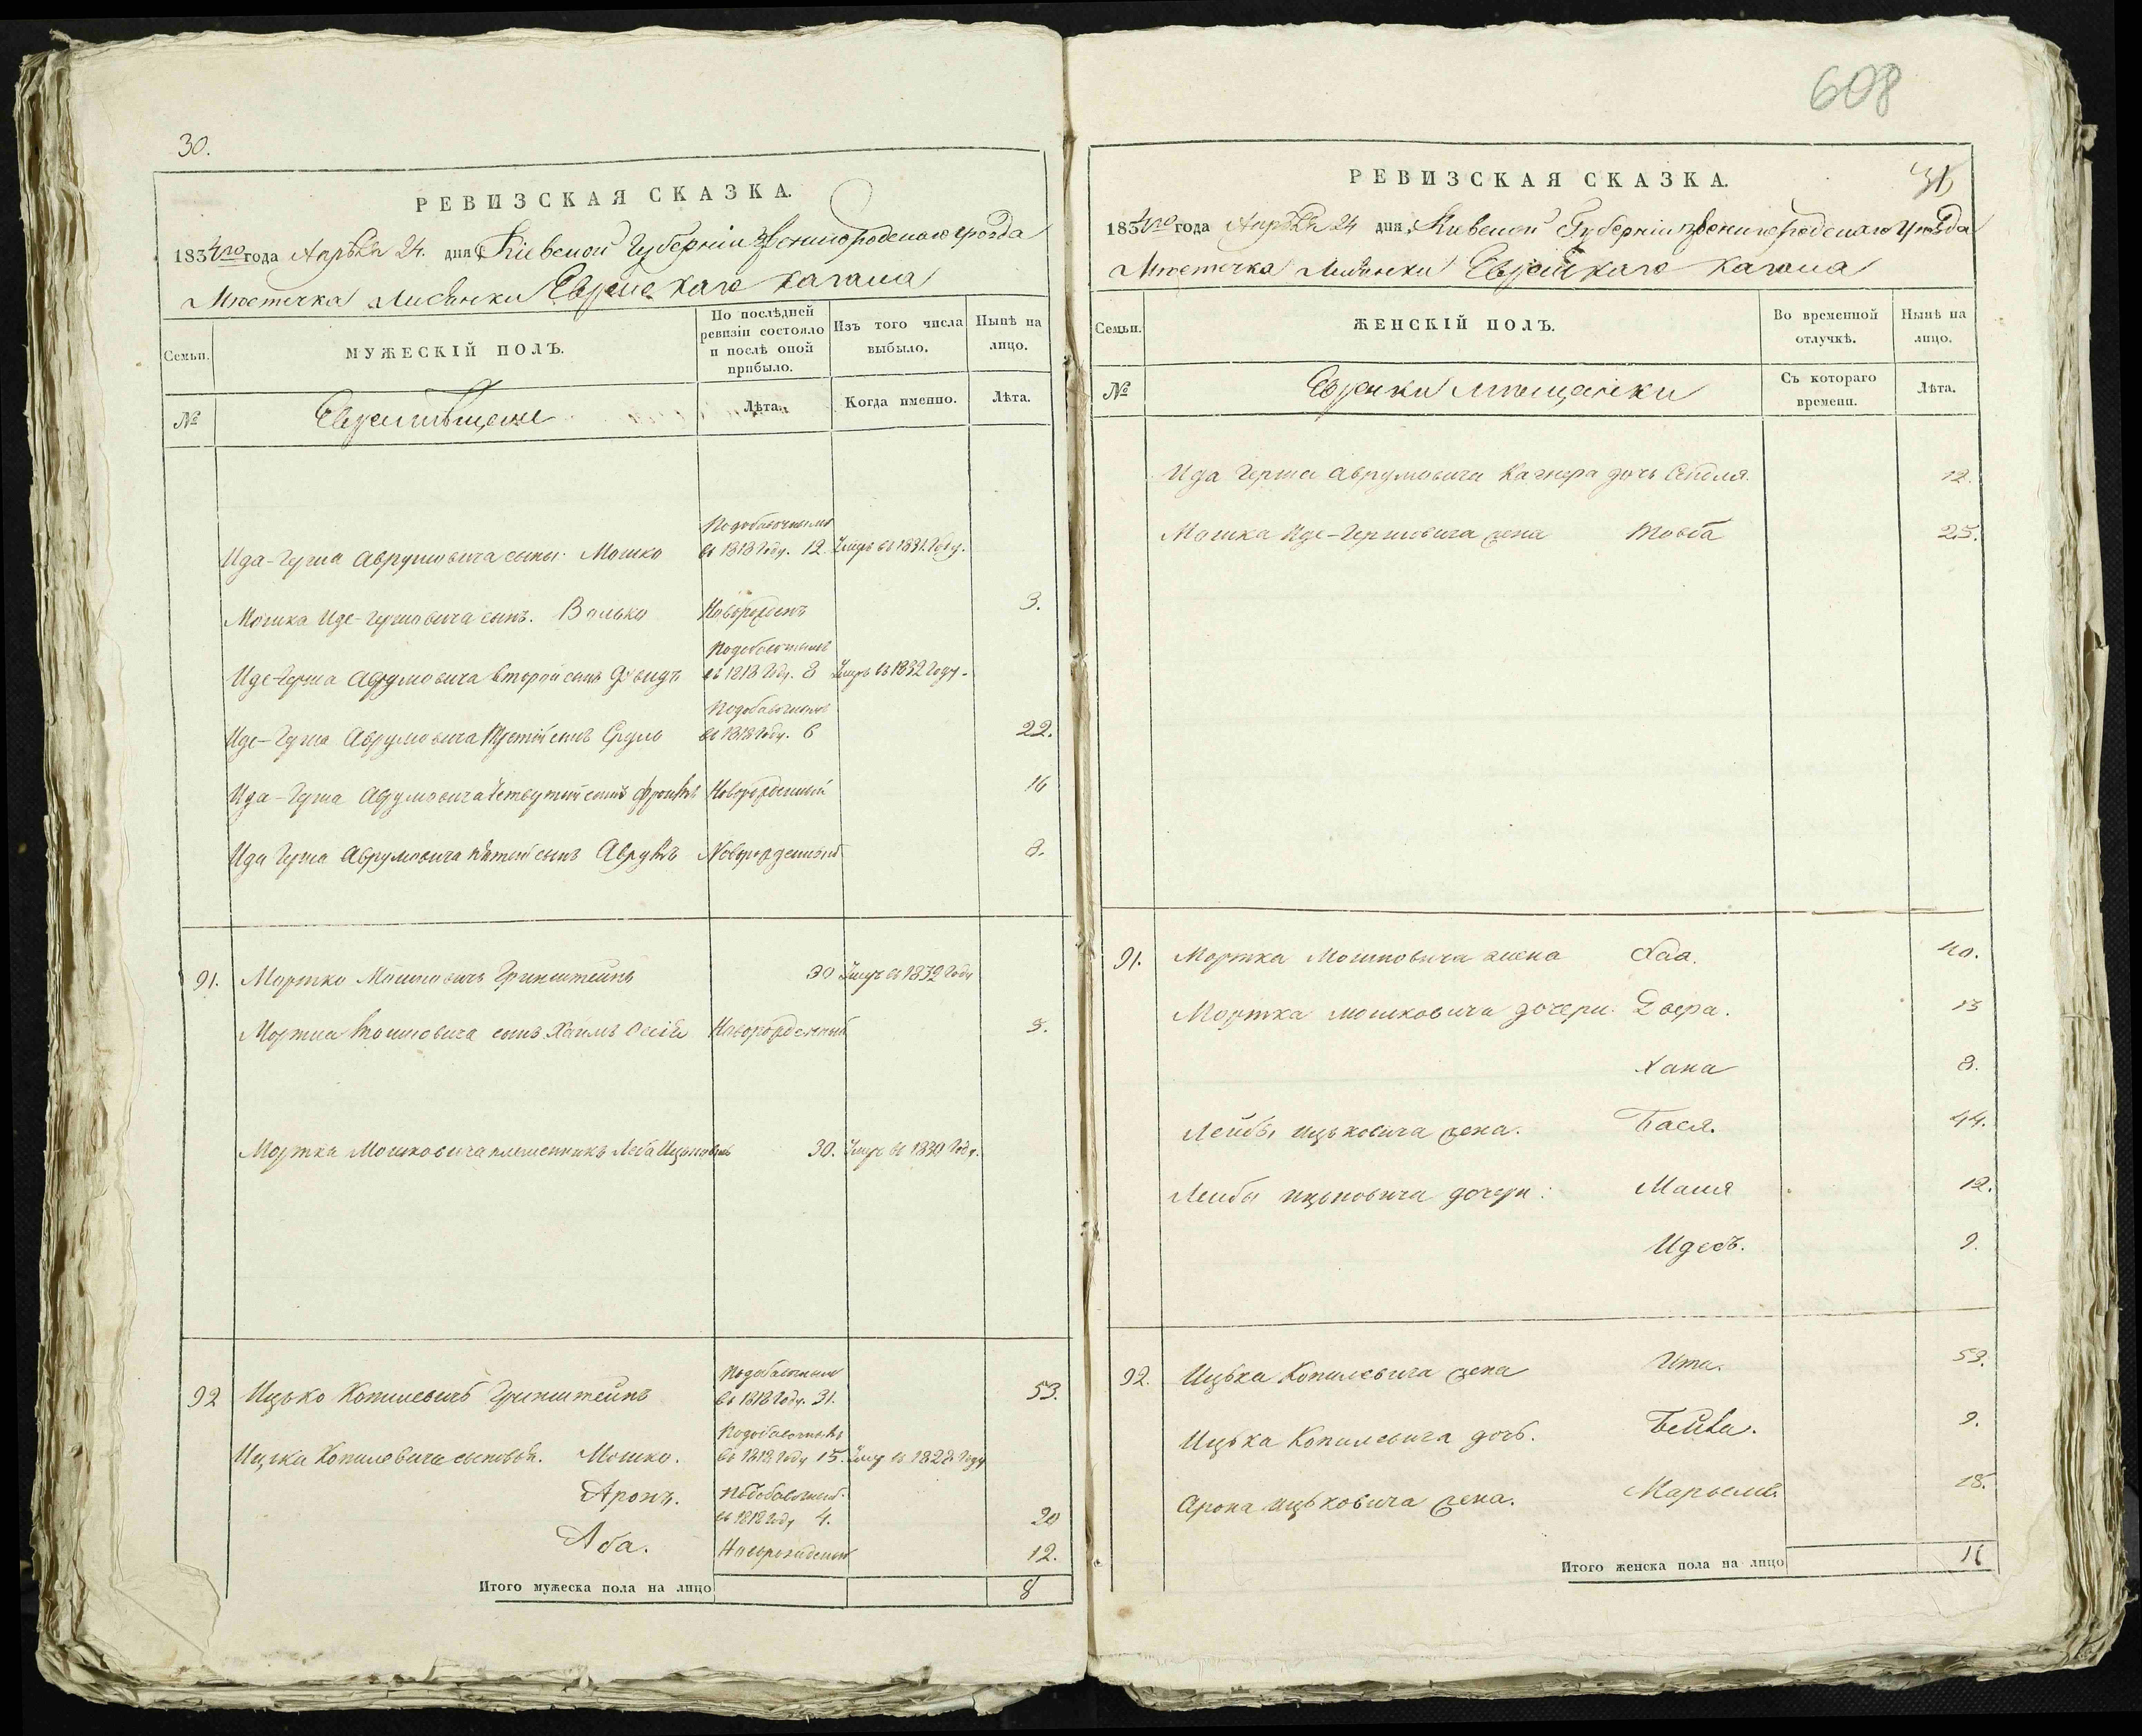 608
30.
РЕВИЗСКАЯ СКАЗКА.
1834го года Апрѣля 24. дня Кіевской Губерніи Звенигородскаго уѣзда
Мѣстечка Лисянки Еврейскаго кагала
Семьи.
МУЖЕСКІЙ ПОЛЪ.
По послѣдней ревизіи состояло и послѣ оной прибыло.
Изъ того числа выбыло.
Нынѣ на лицо.
№
Евреи мѣщане
Лѣта.
Когда именно.
Лѣта.
Подобавочнымъ
Ида-Герша Аврумовича сыны: Мошко въ 1818 Году. 12. Умеръ въ 1831. Году.
Мошка Иде-Гершовича сынъ. Волько Новорожденъ 3.
Подобавочнымъ
Иде-Герша Аврумовича второй сынъ Довидъ въ 1818 Году. 8 Умеръ въ 1832 Году.
Подобавочнымъ
Иде-Герша Аврумовича Третій сынъ Сруль въ 1818 Году. 6 22.
Ида-Герша Аврумовича Четвертый сынъ Новорожденный 16
Ида Герша Аврумовича пятый сынъ Аврумъ Новорожденный 8.
91. Мортко Мошковичъ Гринштейнъ 30 Умеръ въ 1832 Году
Мортка Мошковича сынъ Хаимъ Новорожденный 5.
Мортка Мошковича племенникъ Леба Ицковичъ 30. Умеръ въ 1830 Году.
Подобавочнымъ
92 Ицько Копилевичъ Гринштейнъ въ 1818 Году. 31. 53.
Подобавочнымъ
Ицка Копилевича сыновья. Мошко. въ 1818 Году 15. Умеръ въ 1828 Году
Аронъ. Подобавочный.
въ 1818 Году 4. 20
Аба. Новорожденный 12.
Итого мужеска пола на лицо 8
РЕВИЗСКАЯ СКАЗКА. 31
1834го года Апрѣля 24 дня, Кіевской Губерніи Звенигородскаго Уѣзда
Мѣстечка Лисянки Еврейскаго кагала
Семьи.
ЖЕНСКІЙ ПОЛЪ.
Во временной отлучкѣ.
Нынѣ на лицо.
№
Еврейки мѣщанки
Съ котораго времени.
Лѣта.
Ида Герша Аврумовича дочь 12.
Мошка Иде-Гершовича жена Товба 25.
91. Мортка Мошковича жена Хая. 40.
Мортка мошковича дочери: Двера. 13
Хана 8.
Лейбы ицьковича жена. Бася. 44.
Лейбы ицьковича дочери: Маля 12.
Идесъ. 9.
92. Ицька Копилевича жена Ита. 53.
Ицька Копилевича дочь. Бейла. 9.
Арона ицьковича жена. Марьемъ. 18.
Итого женска пола на лицо 11